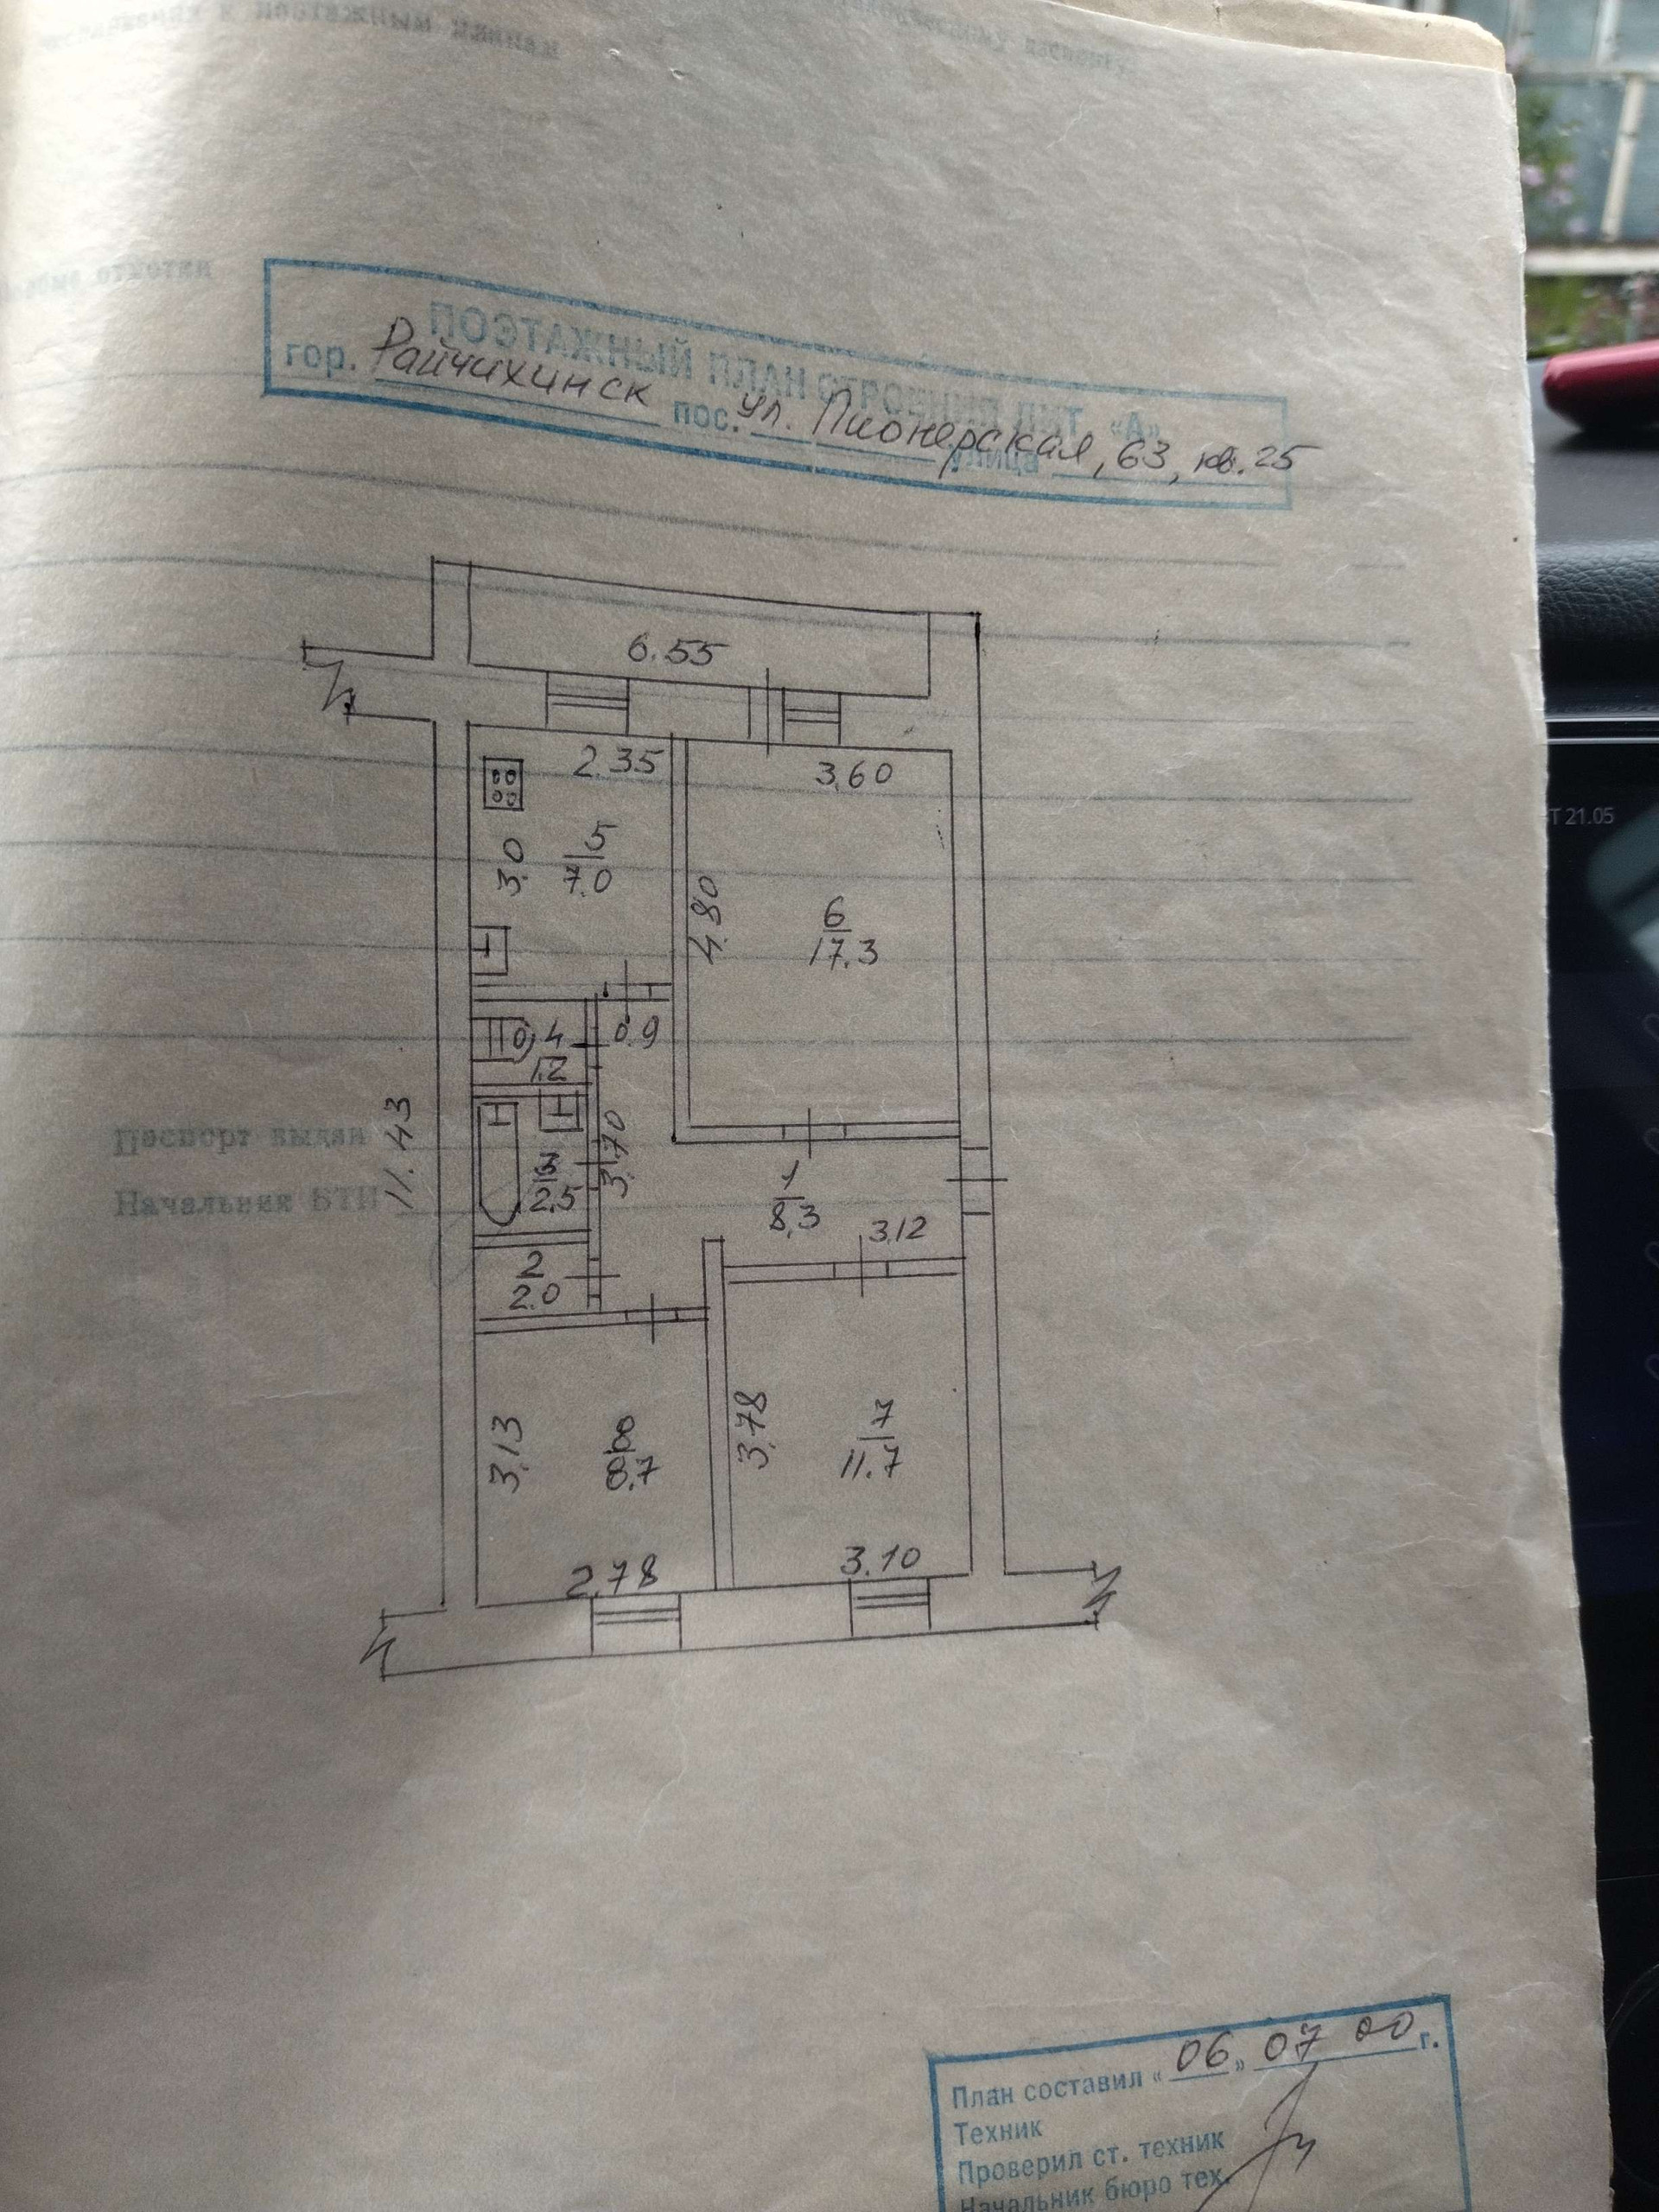 ПОЭТАЖНЫЙ ПЛАН СТРОЕНИЯ ЛИТ. «А»
гор. Райчихинск пос. ул. Пионерская, 63, кв. 25
улица
6.55
2.35
3.60
3.0
5
7.0
4.80
6
17.3
4
1.2
0.9
11.43
3.70
3
2.5
1
8,3
3.12
2
2.0
3.13
8
8.7
3.78
7
11.7
2.78
3.10
Паспорт выдан
Начальник БТИ
Т 21.05
План составил «06» 07 00 г.
Техник
Проверил ст. техник
Начальник бюро тех.